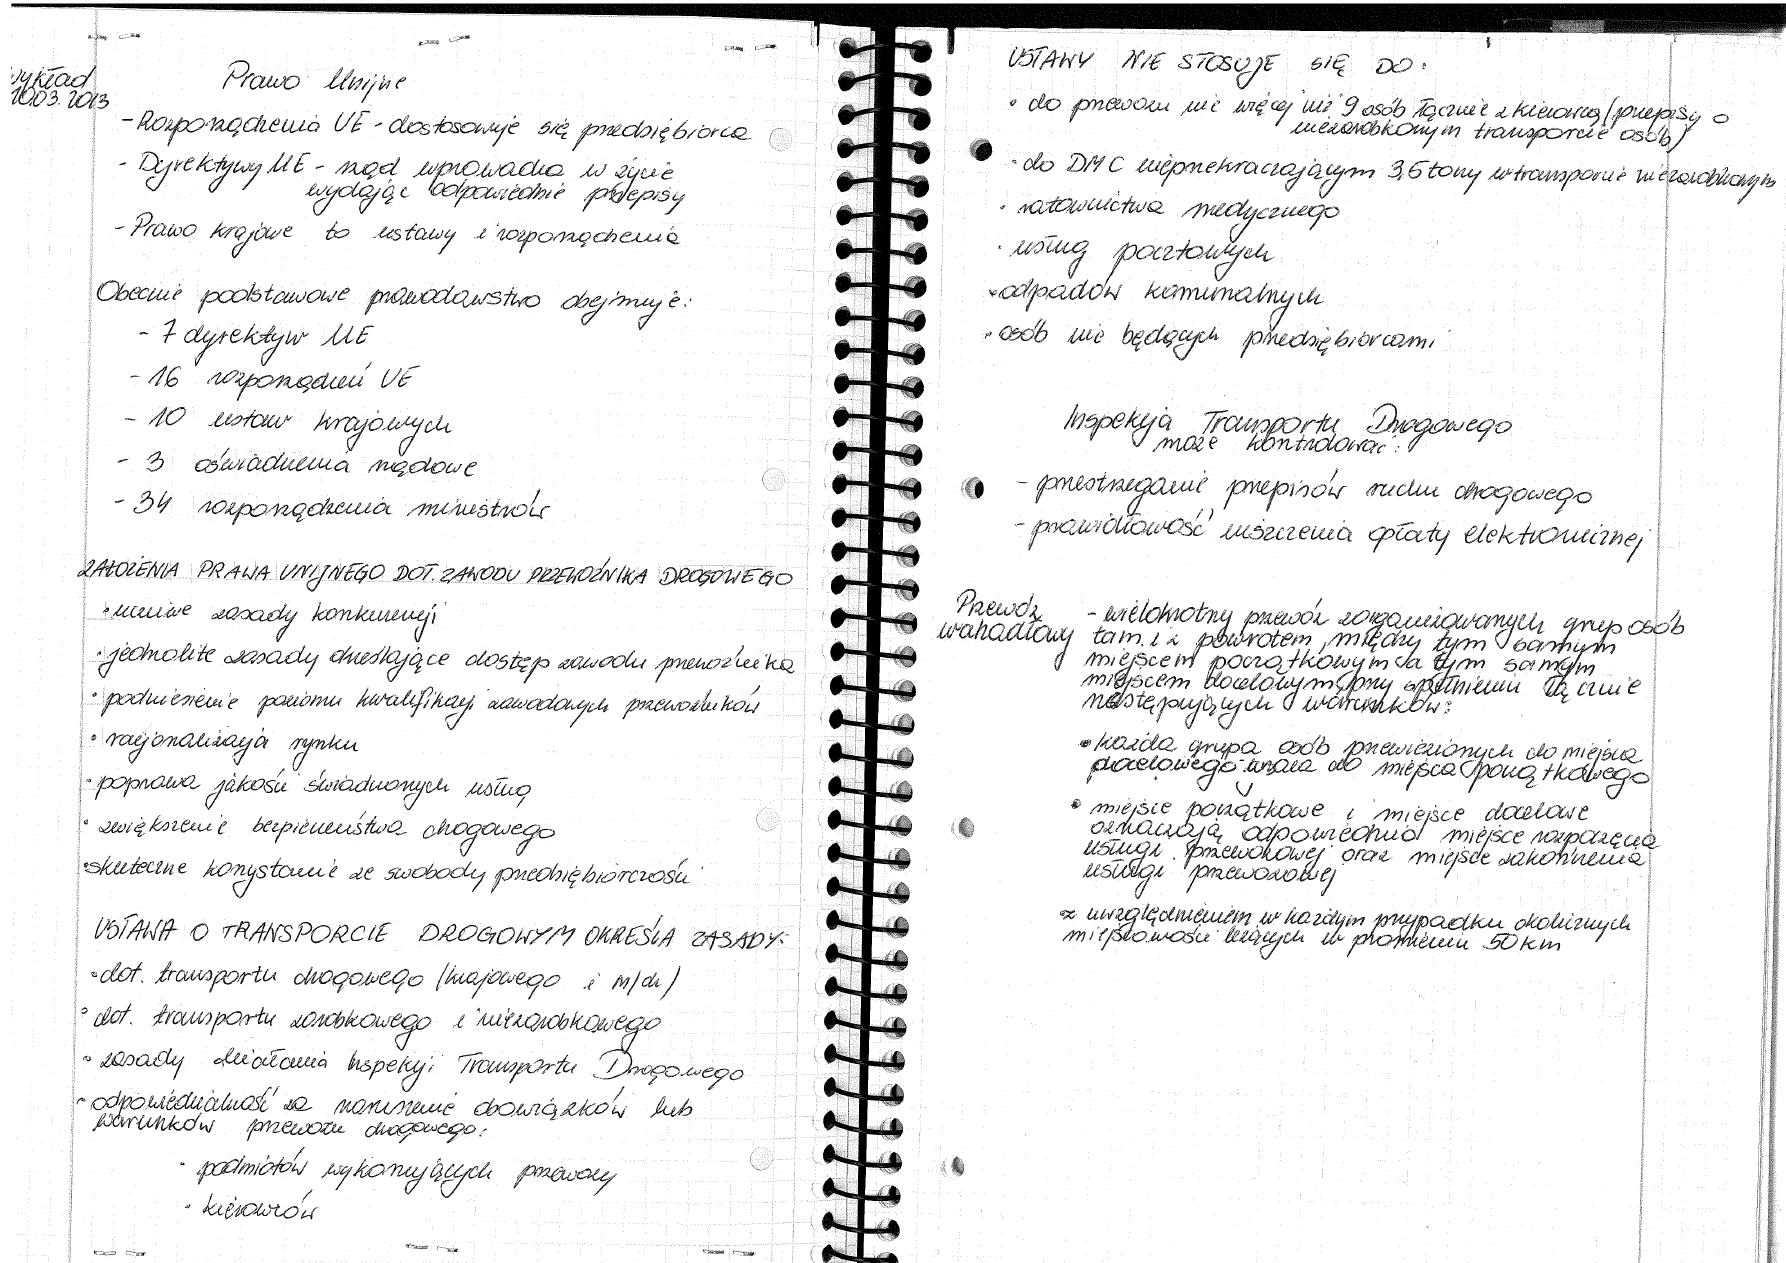 wykład
10.03.2013
Prawo Unijne
- Rozporządzenia UE - dostosowuje się przedsiębiorca
- Dyrektywy UE - rząd wprowadza w życie
wydając odpowiednie przepisy
- Prawo krajowe to ustawy i rozporządzenia
Obecnie podstawowe prawodawstwo obejmuje:
- 7 dyrektyw UE
- 16 rozporządzeń UE
- 10 ustaw krajowych
- 3 oświadczenia rządowe
- 34 rozporządzenia ministrów
ZAŁOŻENIA PRAWA UNIJNEGO DOT. ZAWODU PRZEWOŹNIKA DROGOWEGO
• uczciwe zasady konkurencji
• jednolite zasady określające dostęp zawodu przewoźnika
• podniesienie poziomu kwalifikacji zawodowych przewoźników
• racjonalizacja rynku
• poprawa jakości świadczonych usług
• zwiększenie bezpieczeństwa drogowego
• skuteczne korzystanie ze swobody przedsiębiorczości
USTAWA O TRANSPORCIE DROGOWYM OKREŚLA ZASADY:
• dot. transportu drogowego (krajowego i m/dz)
• dot. transportu zarobkowego i niezarobkowego
• zasady działania Inspekcji Transportu Drogowego
• odpowiedzialność za naruszenie obowiązków lub
warunków przewozu drogowego:
• podmiotów wykonujących przewozy
• kierowców
USTAWY NIE STOSUJE SIĘ DO:
• do przewozu nie więcej niż 9 osób łącznie z kierowcą (przepisy o
niezarobkowym transporcie osób)
• do DMC nieprzekraczającym 3,5 tony w transporcie niezarobkowym
• ratownictwa medycznego
• usług pocztowych
• odpadów komunalnych
• osób nie będących przedsiębiorcami
Inspekcja Transportu Drogowego
może kontrolować:
- przestrzeganie przepisów ruchu drogowego
- prawidłowość uiszczenia opłaty elektronicznej
Przewóz
wahadłowy
- wielokrotny przewóz zorganizowanych grup osób
tam i z powrotem, między tym samym
miejscem początkowym a tym samym
miejscem docelowym, przy spełnieniu łącznie
następujących warunków:
• każda grupa osób przewiezionych do miejsca
docelowego wraca do miejsca początkowego
• miejsce początkowe i miejsce docelowe
oznaczają odpowiednio miejsce rozpoczęcia
usługi przewozowej oraz miejsce zakończenia
usługi przewozowej
z uwzględnieniem w każdym przypadku okolicznych
miejscowości leżących w promieniu 50 km